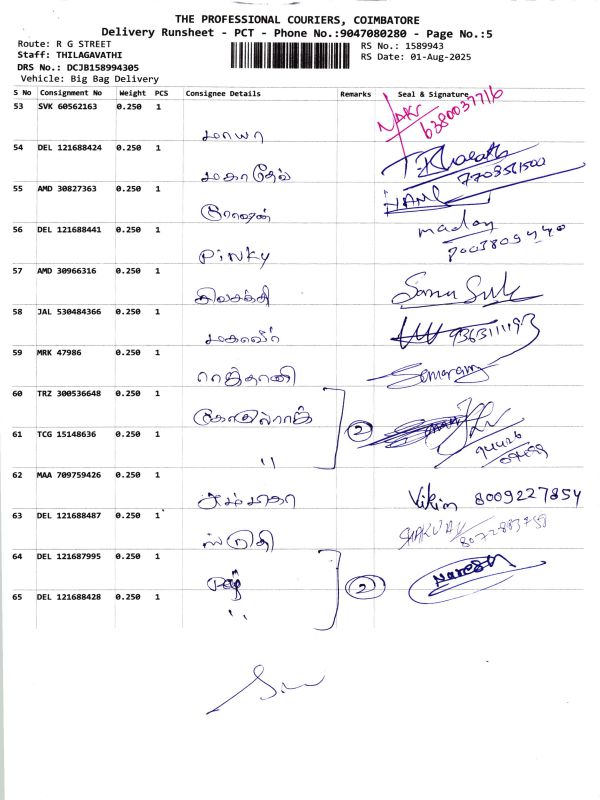 THE PROFESSIONAL COURIERS, COIMBATORE
Delivery Runsheet - PCT - Phone No.:9047080280 - Page No.:5
Route: R G STREET
Staff: THILAGAVATHI
DRS No.: DCJB158994305
Vehicle: Big Bag Delivery
RS No.: 1589943
RS Date: 01-Aug-2025
S No Consignment No Weight PCS Consignee Details Remarks Seal & Signature
53 SVK 60562163 0.250 1
மாயா 6380037716
54 DEL 121688424 0.250 1
மகாதேவ் 7708561500
55 AMD 30827363 0.250 1
ரோஷன்
56 DEL 121688441 0.250 1
PINKY madan
57 AMD 30966316 0.250 1
சிவசக்தி
58 JAL 530484366 0.250 1
மகாவீர் 9363111193
59 MRK 47986 0.250 1
ராஜ்தானி
60 TRZ 300536648 0.250 1
2
61 TCG 15148636 0.250 1
"
62 MAA 709759426 0.250 1
Vikim 8009227854
63 DEL 121688487 0.250 1
ஸ்ருதி
64 DEL 121687995 0.250 1
2 Naresh
65 DEL 121688428 0.250 1
"